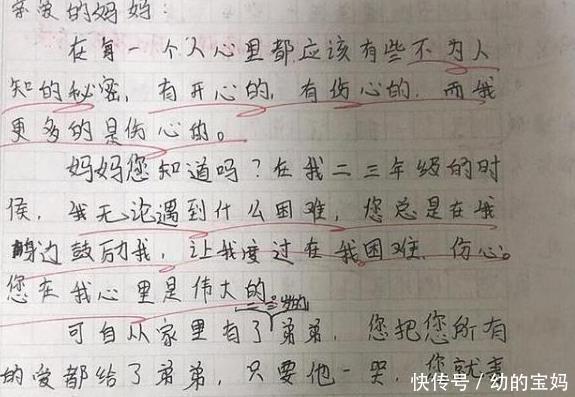 亲爱的妈妈:
在每一个人心里都应该有些不为人
知的秘密,有开心的,有伤心的,而我
更多的是伤心的。
妈妈您知道吗?在我二三年级的时
侯,我无论遇到什么困难,您总是在我
身边鼓励我,让我度过在我困难、伤心。
您在我心里是伟大的。
可自从家里有了弟弟,您把您所有
的爱都给了弟弟,只要他一哭,您就
快传号/幼的宝妈